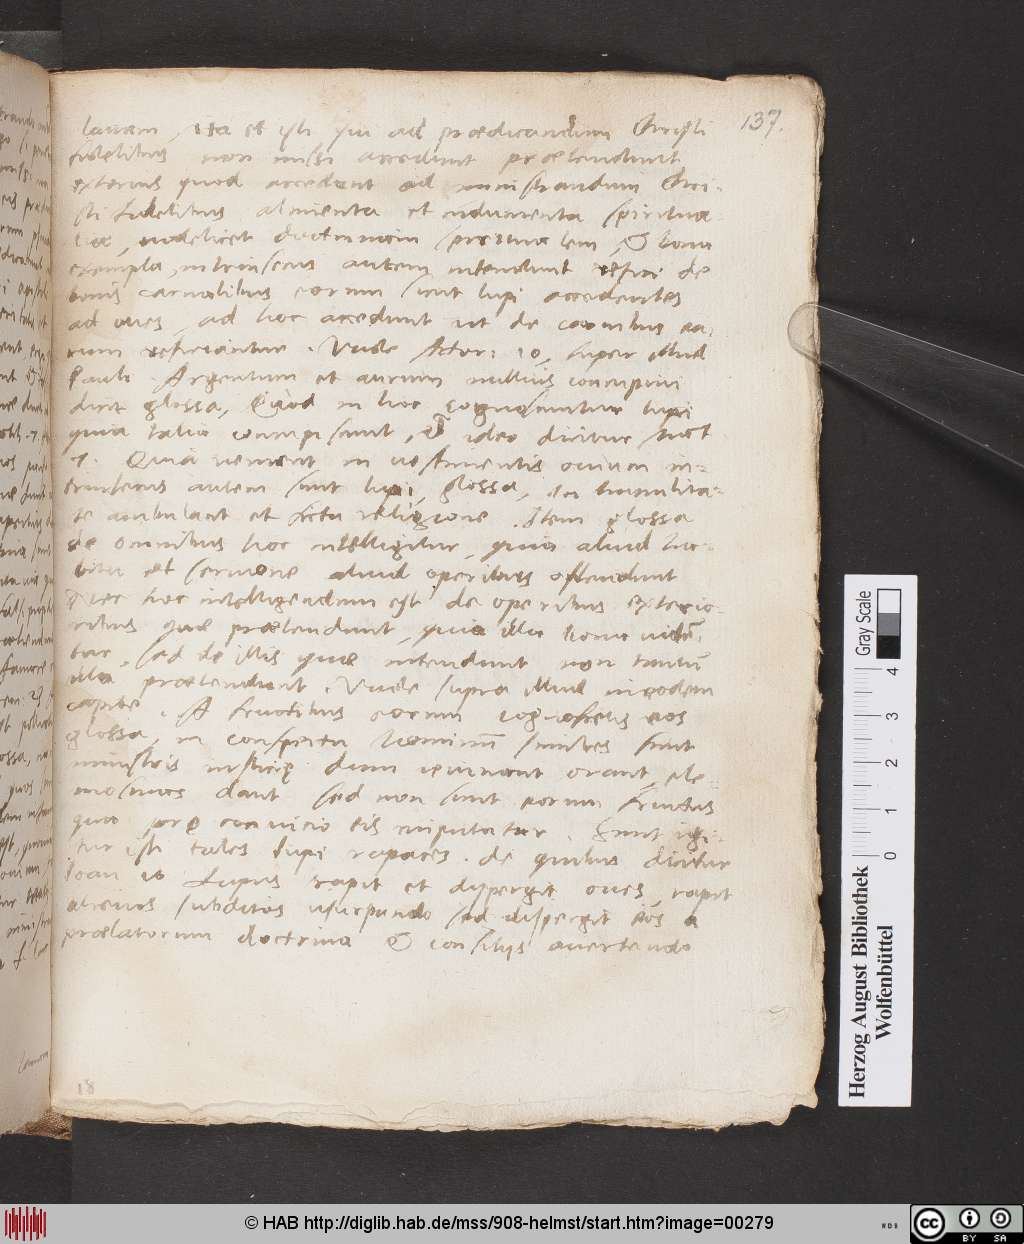 137.
lanam, ita et isti qui ad prædicandum Christi
fidelibus non missi accedunt prætendunt
exterius quod accedant ad ministrandum Chri-
sti fidelibus alimenta et indumenta spiritua-
lia, videlicet doctrinam spiritualem, & bona
exempla, intrinsecus autem intendunt refici de
bonis carnalibus eorum sicut lupi accedentes
ad oues, ad hoc accedunt ut de carnibus ea-
rum reficiantur. Vnde Actor: 20, super illud
Pauli. Argentum et aurum nullius concupiui
dicit glossa, Quod in hoc cognoscuntur lupi
quia talia concupiscunt, & ideo dicitur Mat
7. Qui veniunt in vestimentis ouium in-
trinsecus autem sunt lupi, glossa, in humilita-
te ambulant et ficta religione. Item glossa
de omnibus hoc intelligitur, qui aliud ha-
bitu et sermone aliud operibus ostendunt
nec hoc intelligendum est de operibus exterio-
ribus quæ prætendunt, quia illa bona viden-
tur, sed de illis quæ intendunt non tantum
illa prætendunt. Vnde supra illud in eodem
capite. A fructibus eorum cognoscetis eos
glossa, in conspectu hominum similes sunt
ministris iusticię dum ieiunant orant, ele-
mosinas dant sed non sunt eorum fructus
qua pro conuicio eis imputatur. Sunt igi-
tur isti tales lupi rapaces. de quibus dicitur
Ioan 10 Lupus rapit et dispergit oues, rapit
alienos subditos vsurpando sed dispergit eos a
prælatorum doctrina & consilijs auertendo
18
Herzog August Bibliothek
Wolfenbüttel
Gray Scale
0 1 2 3 4
© HAB http://diglib.hab.de/mss/908-helmst/start.htm?image=00279
WDB
CC BY SA